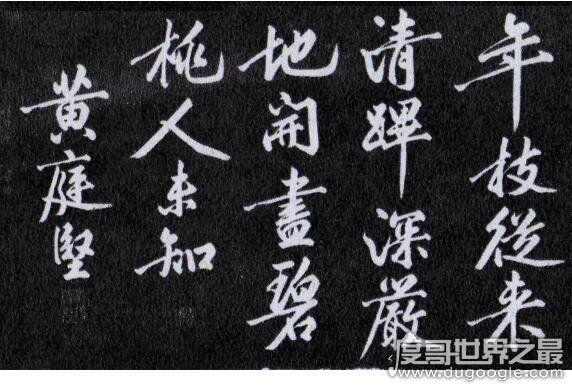 年技從来
清蹕深厳
地開盡碧
桃人未知
黄庭堅
度哥世界之最
www.dugoogle.com